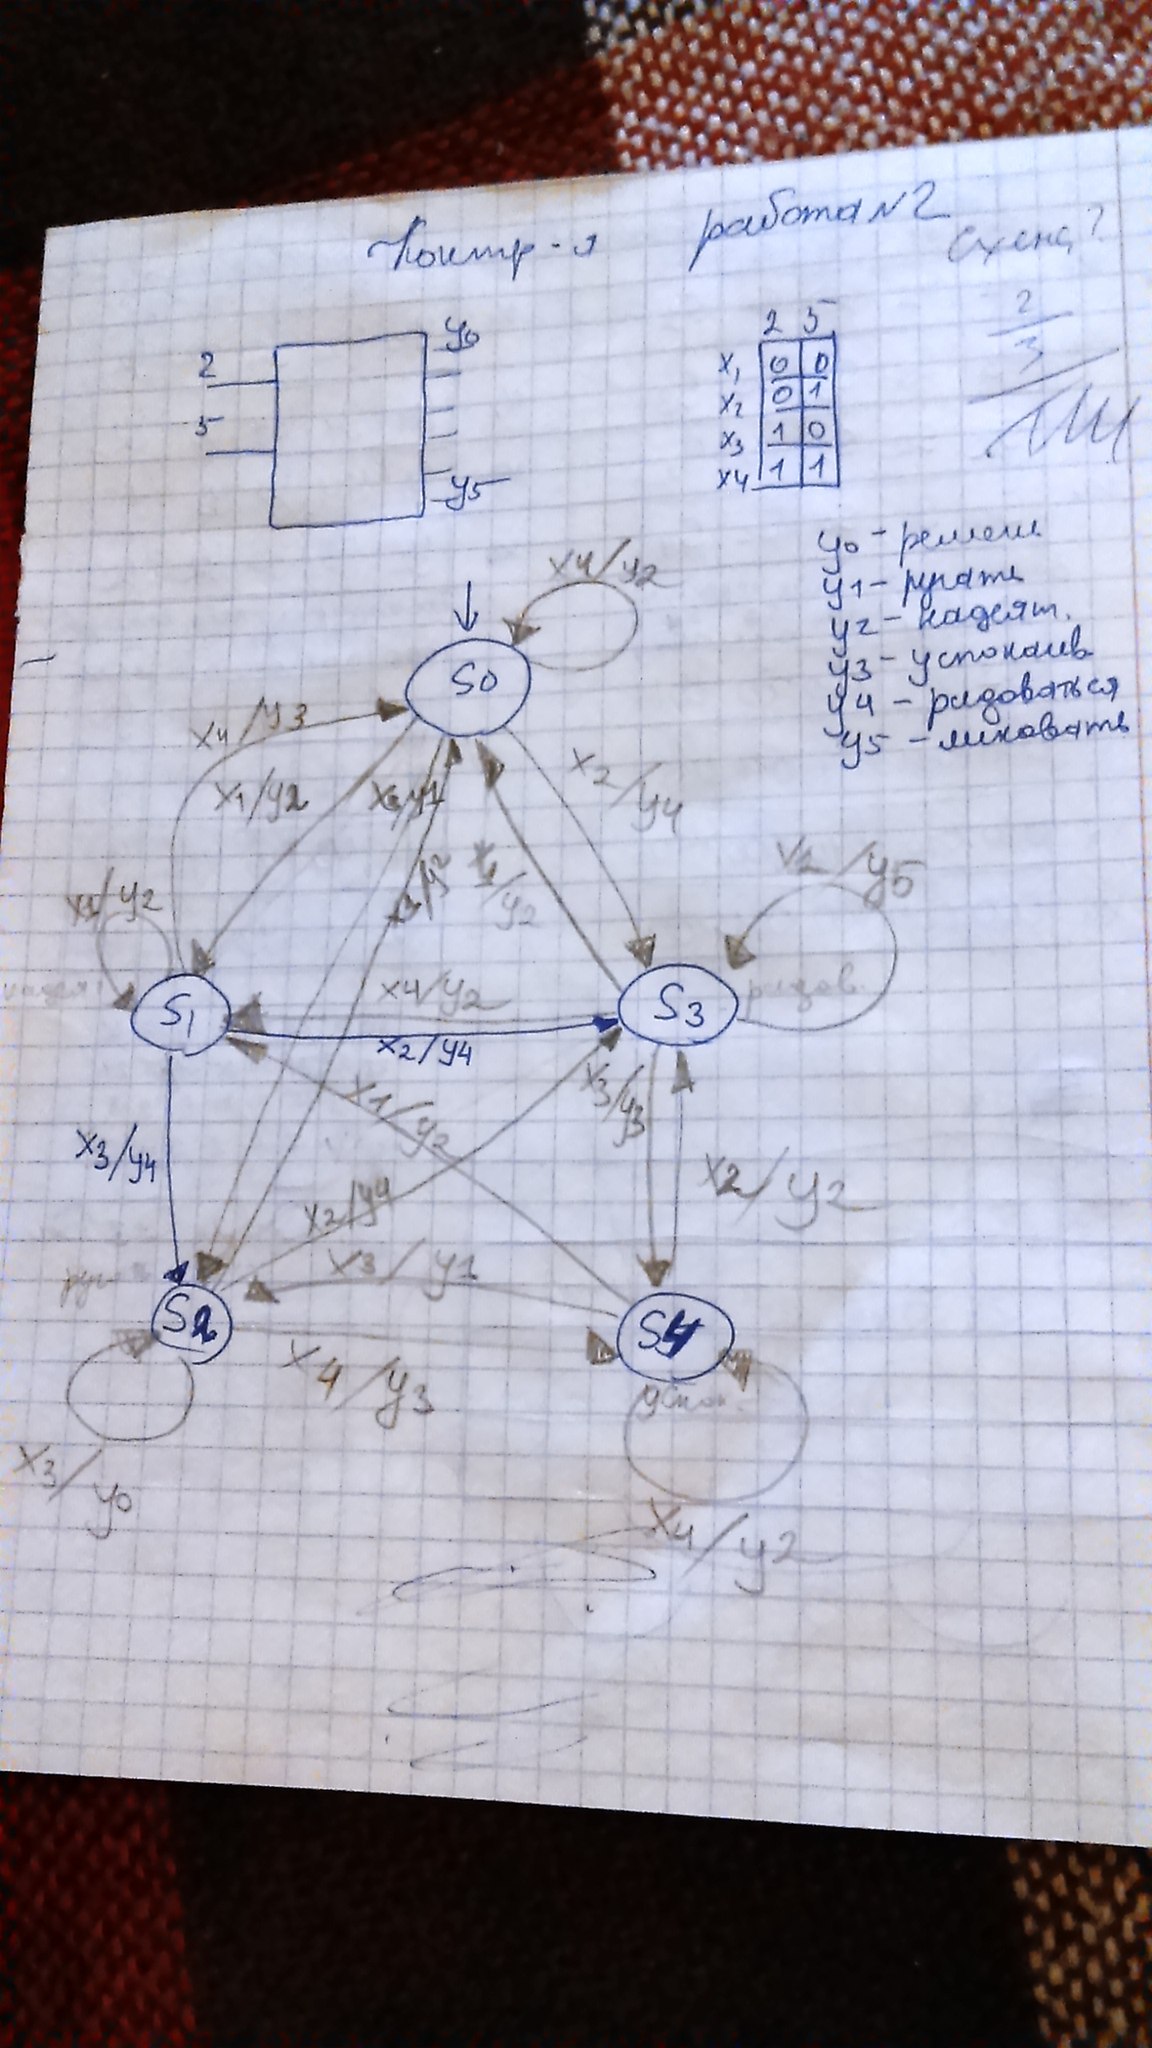 Контр-я работа №2
Схема?
2
3
2
5
y0
y5
2 5
x1 0 0
x2 0 1
x3 1 0
x4 1 1
y0 - ремень
y1 - ругать
y2 - надеят.
y3 - успокаив
y4 - радоваться
y5 - ликовать
x4/y2
S0
x4/y3
x1/y2
x2/y4
/y2
/y5
/y2
S1
x4/y2
x2/y4
S3
радов.
x3/y4
x1/y2
x3/y3
x2/y2
x2/y4
x3/y1
руг
S2
x4/y3
S4
успок.
x3/y0
x4/y2